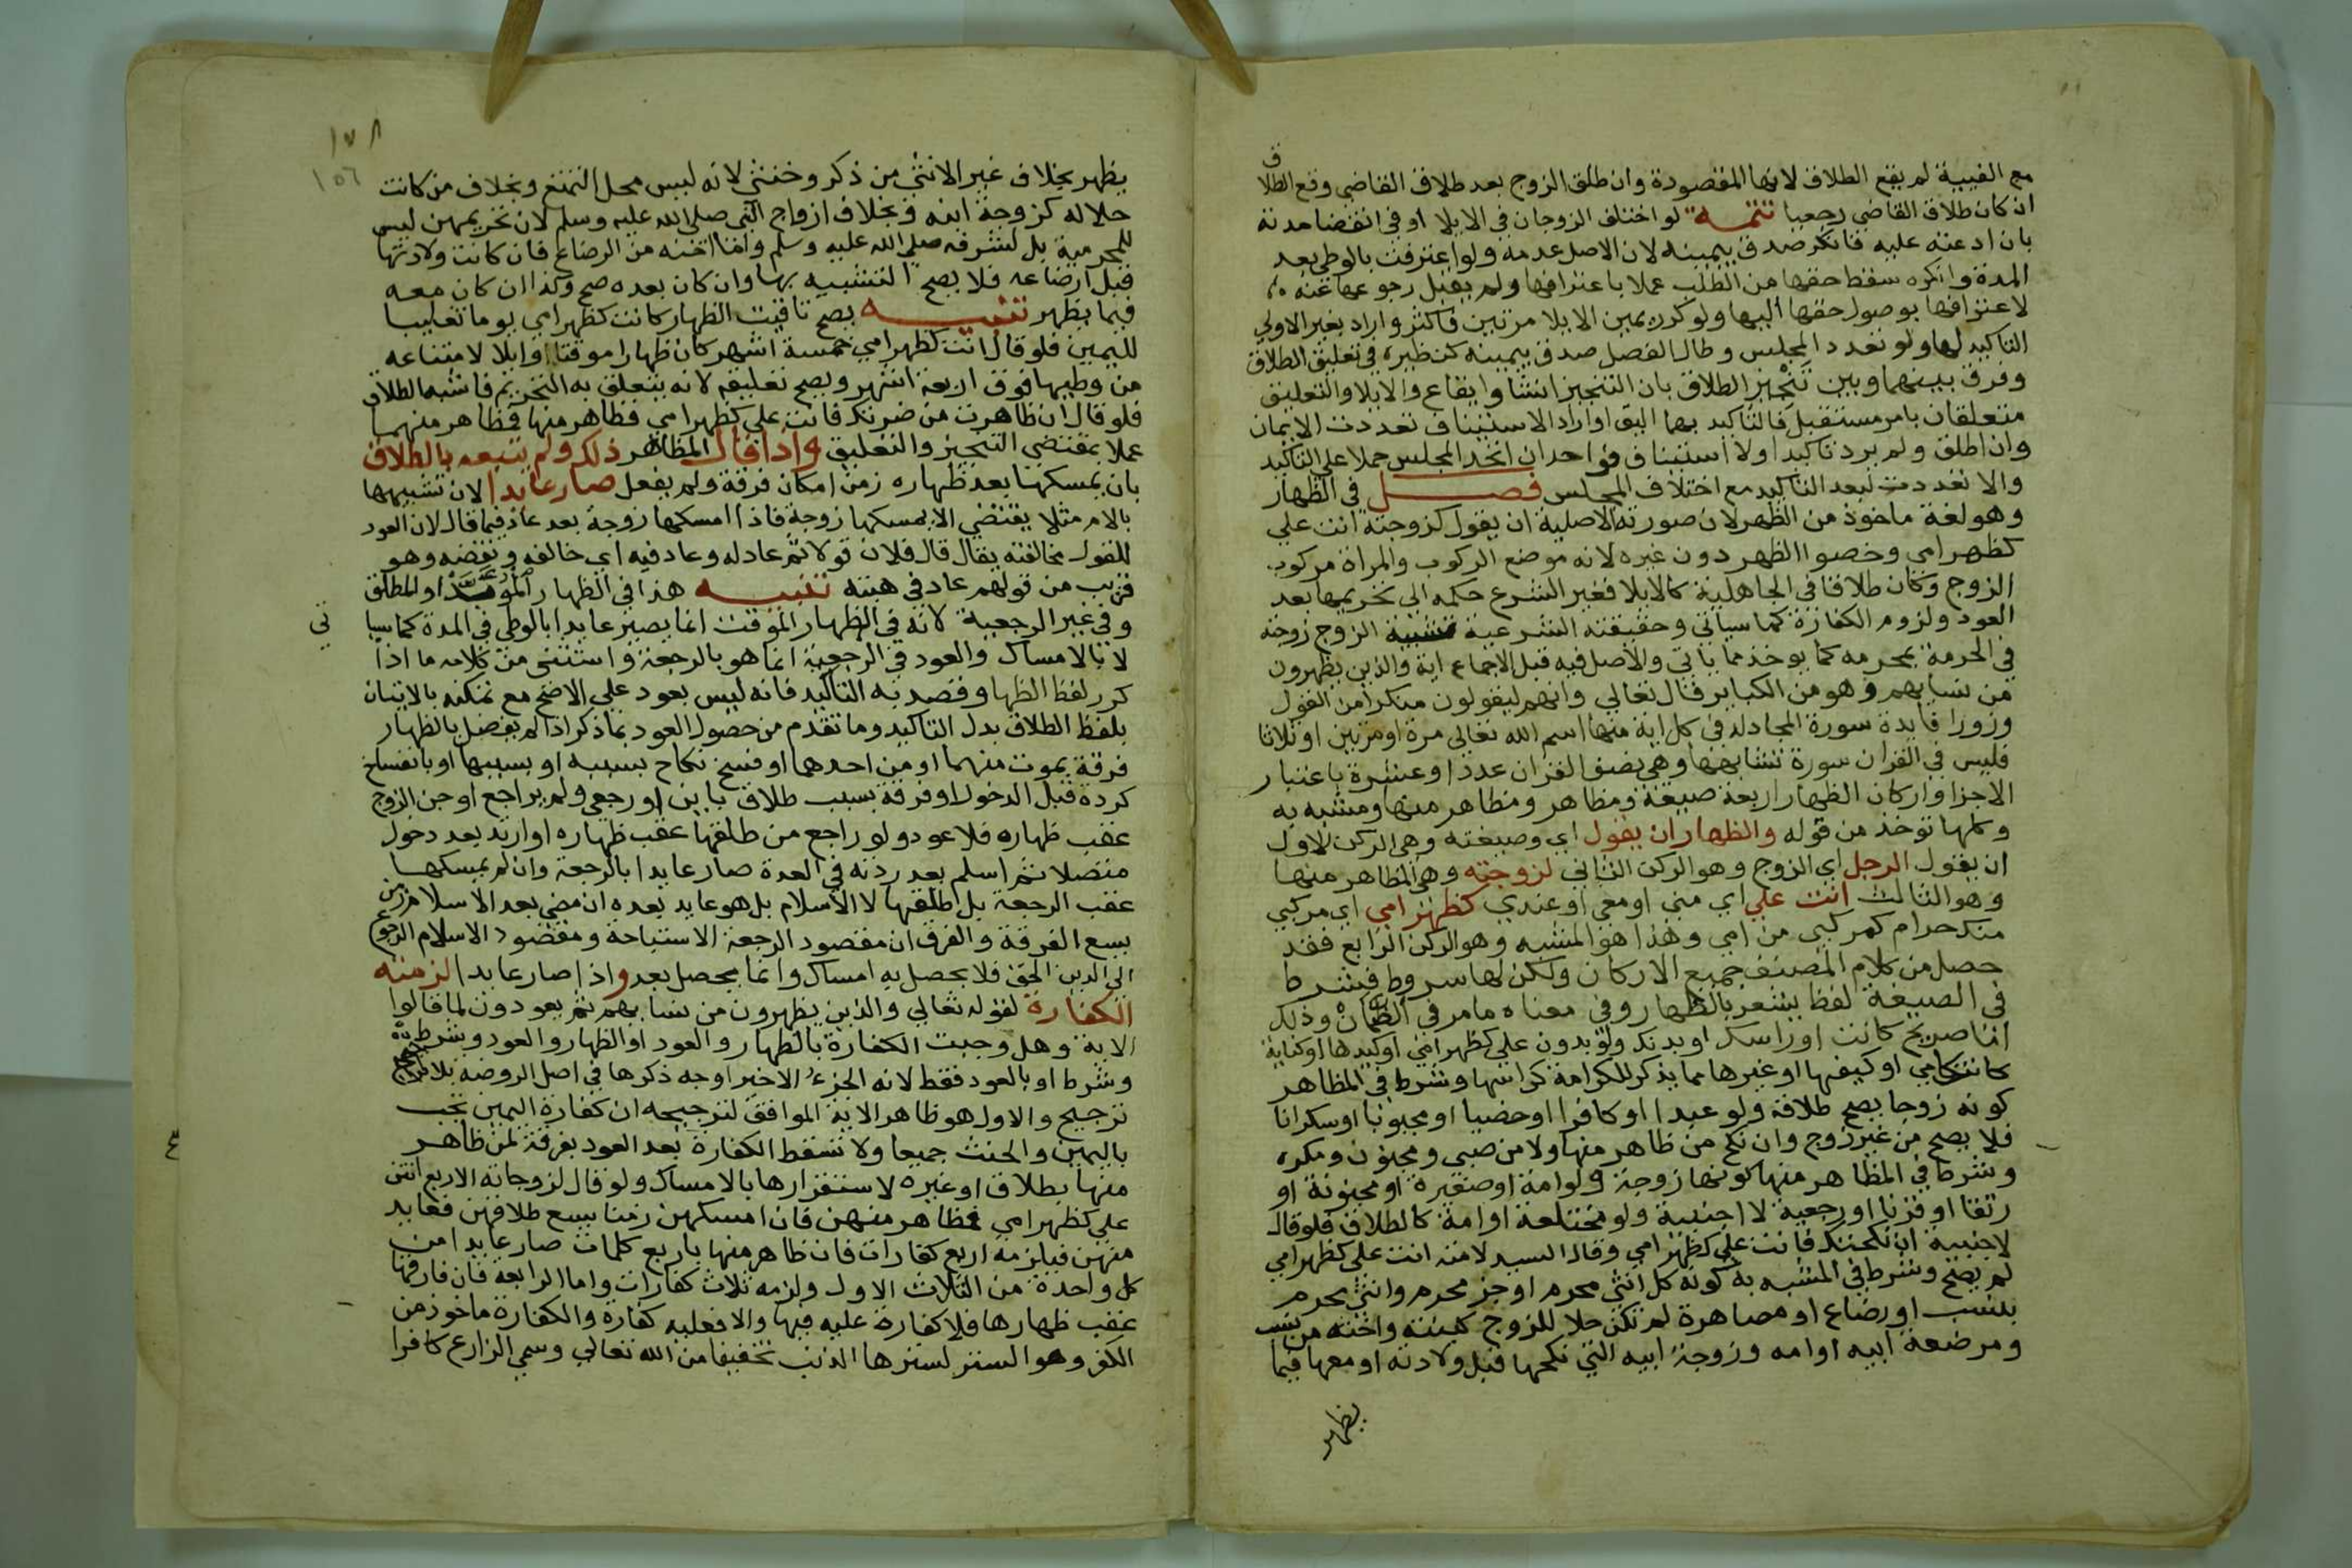 مع الغيبة لم يقع الطلاق لانها المقصودة وان طلق الزوج بعد طلاق القاضي وقع الطلاق
ان كان طلاق القاضي رجعيا تتمة لو اختلف الزوجان في الايلا او في انقضا مدته
بان ادعته عليه فانكر صدق بيمينه لان الاصل عدمه ولو اعترفت بالوطي بعد
المدة وانكره سقط حقها من الطلب عملا باعترافها ولم يقبل رجوعها عنه
لاعترافها بوصول حقها اليها ولو كرر يمين الايلا مرتين فاكثر واراد بغير الاولي
التاكيد لها ولو تعدد المجلس وطال الفصل صدق بيمينه كنظيره في تعليق الطلاق
وفرق بينهما وبين تنجيز الطلاق بان التنجيز انشا وايقاع والايلا والتعليق
متعلقان بامر مستقبل فالتاكيد بهما اليق او اراد الاستيناف تعددت الايمان
وان اطلق ولم يرد تاكيدا ولا استينافا فواحد ان اتحد المجلس حملا علي التاكيد
والا تعددت لبعد التاكيد مع اختلاف المجلس فصل في الظهار
وهو لغة ماخوذ من الظهر لان صورته الاصلية ان يقول لزوجته انت علي
كظهر امي وخصوا الظهر دون غيره لانه موضع الركوب والمراة مركوب
الزوج وكان طلاقا في الجاهلية كالايلا فغير الشرع حكمه الي تحريمها بعد
العود ولزوم الكفارة كما سياتي وحقيقته الشرعية تشبيه الزوج زوجته
في الحرمة بمحرمه كما يوخذ مما ياتي والاصل فيه قبل الاجماع اية والذين يظهرون
من نسايهم وهو من الكباير قال تعالي وانهم ليقولون منكرا من القول
وزورا فايدة سورة المجادلة في كل اية منها اسم الله تعالي مرة او مرتين او ثلاثا
فليس في القران سورة تشابهها وهي نصف القران عددا وعشره باعتبار
الاجزا واركان الظهار اربعة صيغة ومظاهر ومظاهر منها ومشبه به
وكلها توخذ من قوله والظهار ان يقول اي وصيغته وهي الركن الاول
ان يقول الرجل اي الزوج وهو الركن الثاني لزوجته وهي المظاهر منها
وهو الثالث انت علي اي مني او معي او عندي كظهر امي اي مركبي
منك حرام كمركبي من امي وهذا هو المشبه وهو الركن الرابع فقد
حصل من كلام المصنف جميع الاركان ولكن لها شروط فيشرط
في الصيغة لفظ يشعر بالظهار وفي معناه ما مر في الضمان وذلك
اما صريح كانت او راسك او بدنك ولو بدون علي كظهر امي او كيدها او كناية
كانت كامي او كعينها او غيرها مما يذكر للكرامة كراسها وشرط في المظاهر
كونه زوجا يصح طلاقه ولو عبدا او كافرا او خصيا او مجبوبا او سكرانا
فلا يصح من غير زوج وان نكح من ظاهر منها ولا من صبي ومجنون ومكره
وشرط في المظاهر منها كونها زوجة ولو امة او صغيرة او مجنونة او
رتقا او قرنا او رجعية لا اجنبية ولو مختلعة او امة كالطلاق فلو قال
لاجنبية ان نكحتك فانت علي كظهر امي وقال السيد لامته انت علي كظهر امي
لم يصح وشرط في المشبه به كونه كل انثي محرم او جز محرم وانثي محرم
بنسب او رضاع او مصاهرة لم تكن حلا للزوج كبنته واخته من نسب
ومرضعة ابيه او امه وزوجة ابيه التي نكحها قبل ولادته او معها فيما
يظهر
١٧٨
١٥٦
يظهر بخلاف غير الانثي من ذكر وخنثي لانه ليس محل التمتع وبخلاف من كانت
حلاله كزوجة ابنه وبخلاف ازواج النبي صلى الله عليه وسلم لان تحريمهن ليس
للمحرمية بل لشرفه صلي الله عليه وسلم واما اخته من الرضاع فان كانت ولادتها
قبل ارضاعه فلا يصح التشبيه بها وان كان بعده صح وكذا ان كان معه
فيما يظهر تنبيه يصح تاقيت الظهار كانت كظهر امي يوما تغليبا
لليمين فلو قال انت كظهر امي خمسة اشهر كان ظهارا موقتا وايلا لامتناعه
من وطيها فوق اربعة اشهر ويصح تعليقه لانه يتعلق به التحريم فاشبه الطلاق
فلو قال ان ظاهرت من ضرتك فانت علي كظهر امي فظاهر منها فظاهر منهما
عملا بمقتضي التنجيز والتعليق واذا قال المظاهر ذلك ولم يتبعه بالطلاق
بان يمسكها بعد ظهاره زمن امكان فرقة ولم يفعل صار عايدا لان تشبيهها
بالام مثلا يقتضي الا يمسكها زوجة فاذا امسكها زوجة بعد عاد فيما قال لان العود
للقول مخالفته يقال قال فلان قولا ثم عاد له وعاد فيه اي خالفه ونقضه وهو
قريب من قولهم عاد في هبته تنبيه هذا في الظهار المؤبد او المطلق
وفي غير الرجعية لانه في الظهار الموقت انما يصير عايدا بالوطي في المدة كما سيا
تي
لا بالامساك والعود في الرجعية انما هو بالرجعة واستثني من كلامه ما اذا
كرر لفظ الظهار وقصد به التاكيد فانه ليس بعود علي الاصح مع تمكنه بالاتيان
بلفظ الطلاق بدل التاكيد وما تقدم من حصول العود بما ذكر اذا لم يفصل بالظهار
فرقة بموت منهما او من احدهما او فسخ نكاح بسببه او بسببها او بانفساخ
كردة قبل الدخول او فرقة بسبب طلاق باين او رجعي ولم يراجع او جن الزوج
عقب ظهاره فلا عود ولو راجع من طلقها عقب ظهاره او ارتد بعد دخول
متصلا ثم اسلم بعد ردته في العدة صار عايدا بالرجعة وان لم يمسكها
عقب الرجعة بل طلقها لا الاسلام بل هو عايد بعده ان مضي بعد الاسلام زمن
يسع الفرقة والفرق ان مقصود الرجعة الاستباحة ومقصود الاسلام الرجوع
الي الدين الحق فلا يحصل به امساك وانما يحصل بعد واذا صار عايدا لزمته
الكفارة لقوله تعالي والذين يظهرون من نسايهم ثم يعودون لما قالوا
الاية وهل وجبت الكفارة بالظهار والعود او الظهار والعود وشرط
وشرط او بالعود فقط لانه الجزء الاخير اوجه ذكرها في اصل الروضة بلا
ترجيح والاول هو ظاهر الاية الموافق لترجيحه ان كفارة اليمين تجب
باليمين والحنث جميعا ولا تسقط الكفارة بعد العود بفرقة لمن ظاهر
منها بطلاق او غيره لاستقرارها بالامساك ولو قال لزوجاته الاربع انتن
علي كظهر امي فظاهر منهن فان امسكهن زمنا يسع طلاقهن فعايد
منهن فيلزمه اربع كفارات فان ظاهر منها باربع كلمات صار عايدا من
كل واحدة من الثلاث الاول ولزمه ثلاث كفارات واما الرابعة فان فارقها
عقب ظهارها فلا كفارة عليه فيها والا فعليه كفارة والكفارة ماخوذ من
الكفر وهو الستر لسترها الذنب تخفيفا من الله تعالي وسمي الزارع كافرا